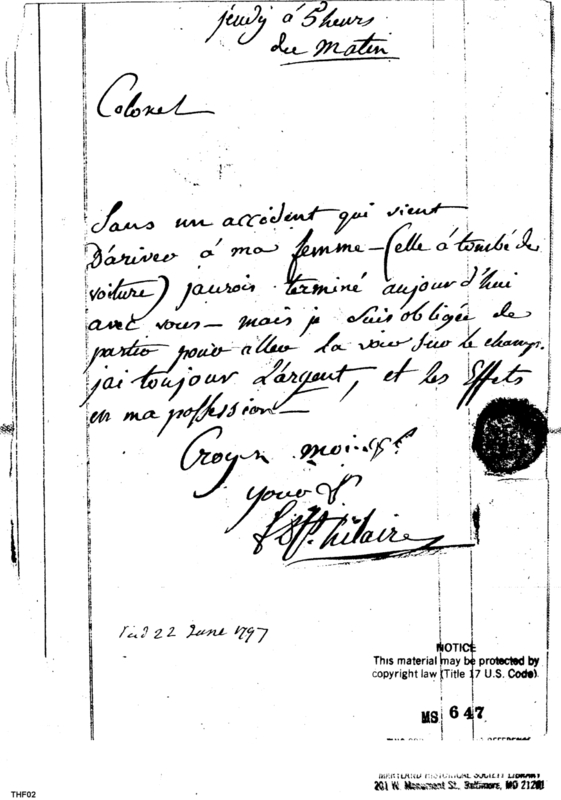 jeudy à 5 heurs
du matin
Colonel
Sans un accident qui vient
D'ariver à ma femme – (elle à tombé de
voiture) jaurois terminé aujourd'hui
avec vous – mais je suis obligée de
partir pour aller la voir sur le champ.
jai toujour L'argent, et les Effets
en ma possession –
Croyez moi &c.
your &c
St. hilaire
22 June 1797
NOTICE
This material may be protected by
copyright law (Title 17 U.S. Code).
MS 647
MARYLAND HISTORICAL SOCIETY LIBRARY
201 W. Monument St., Baltimore, MD 21201
THF02